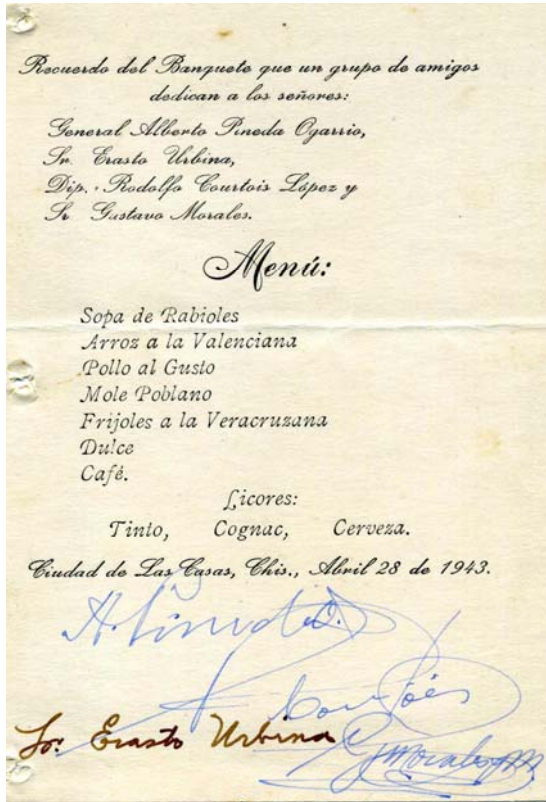 Recuerdo del Banquete que un grupo de amigos
dedican a los señores:
General Alberto Pineda Ogarrio,
Sr. Erasto Urbina,
Dip. Rodolfo Courtois López y
Sr. Gustavo Morales.
Menú:
Sopa de Rabioles
Arroz a la Valenciana
Pollo al Gusto
Mole Poblano
Frijoles a la Veracruzana
Dulce
Café.
Licores:
Tinto, Cognac, Cerveza.
Ciudad de Las Casas, Chis., Abril 28 de 1943.
A. Pineda O.
Sr. Erasto Urbina